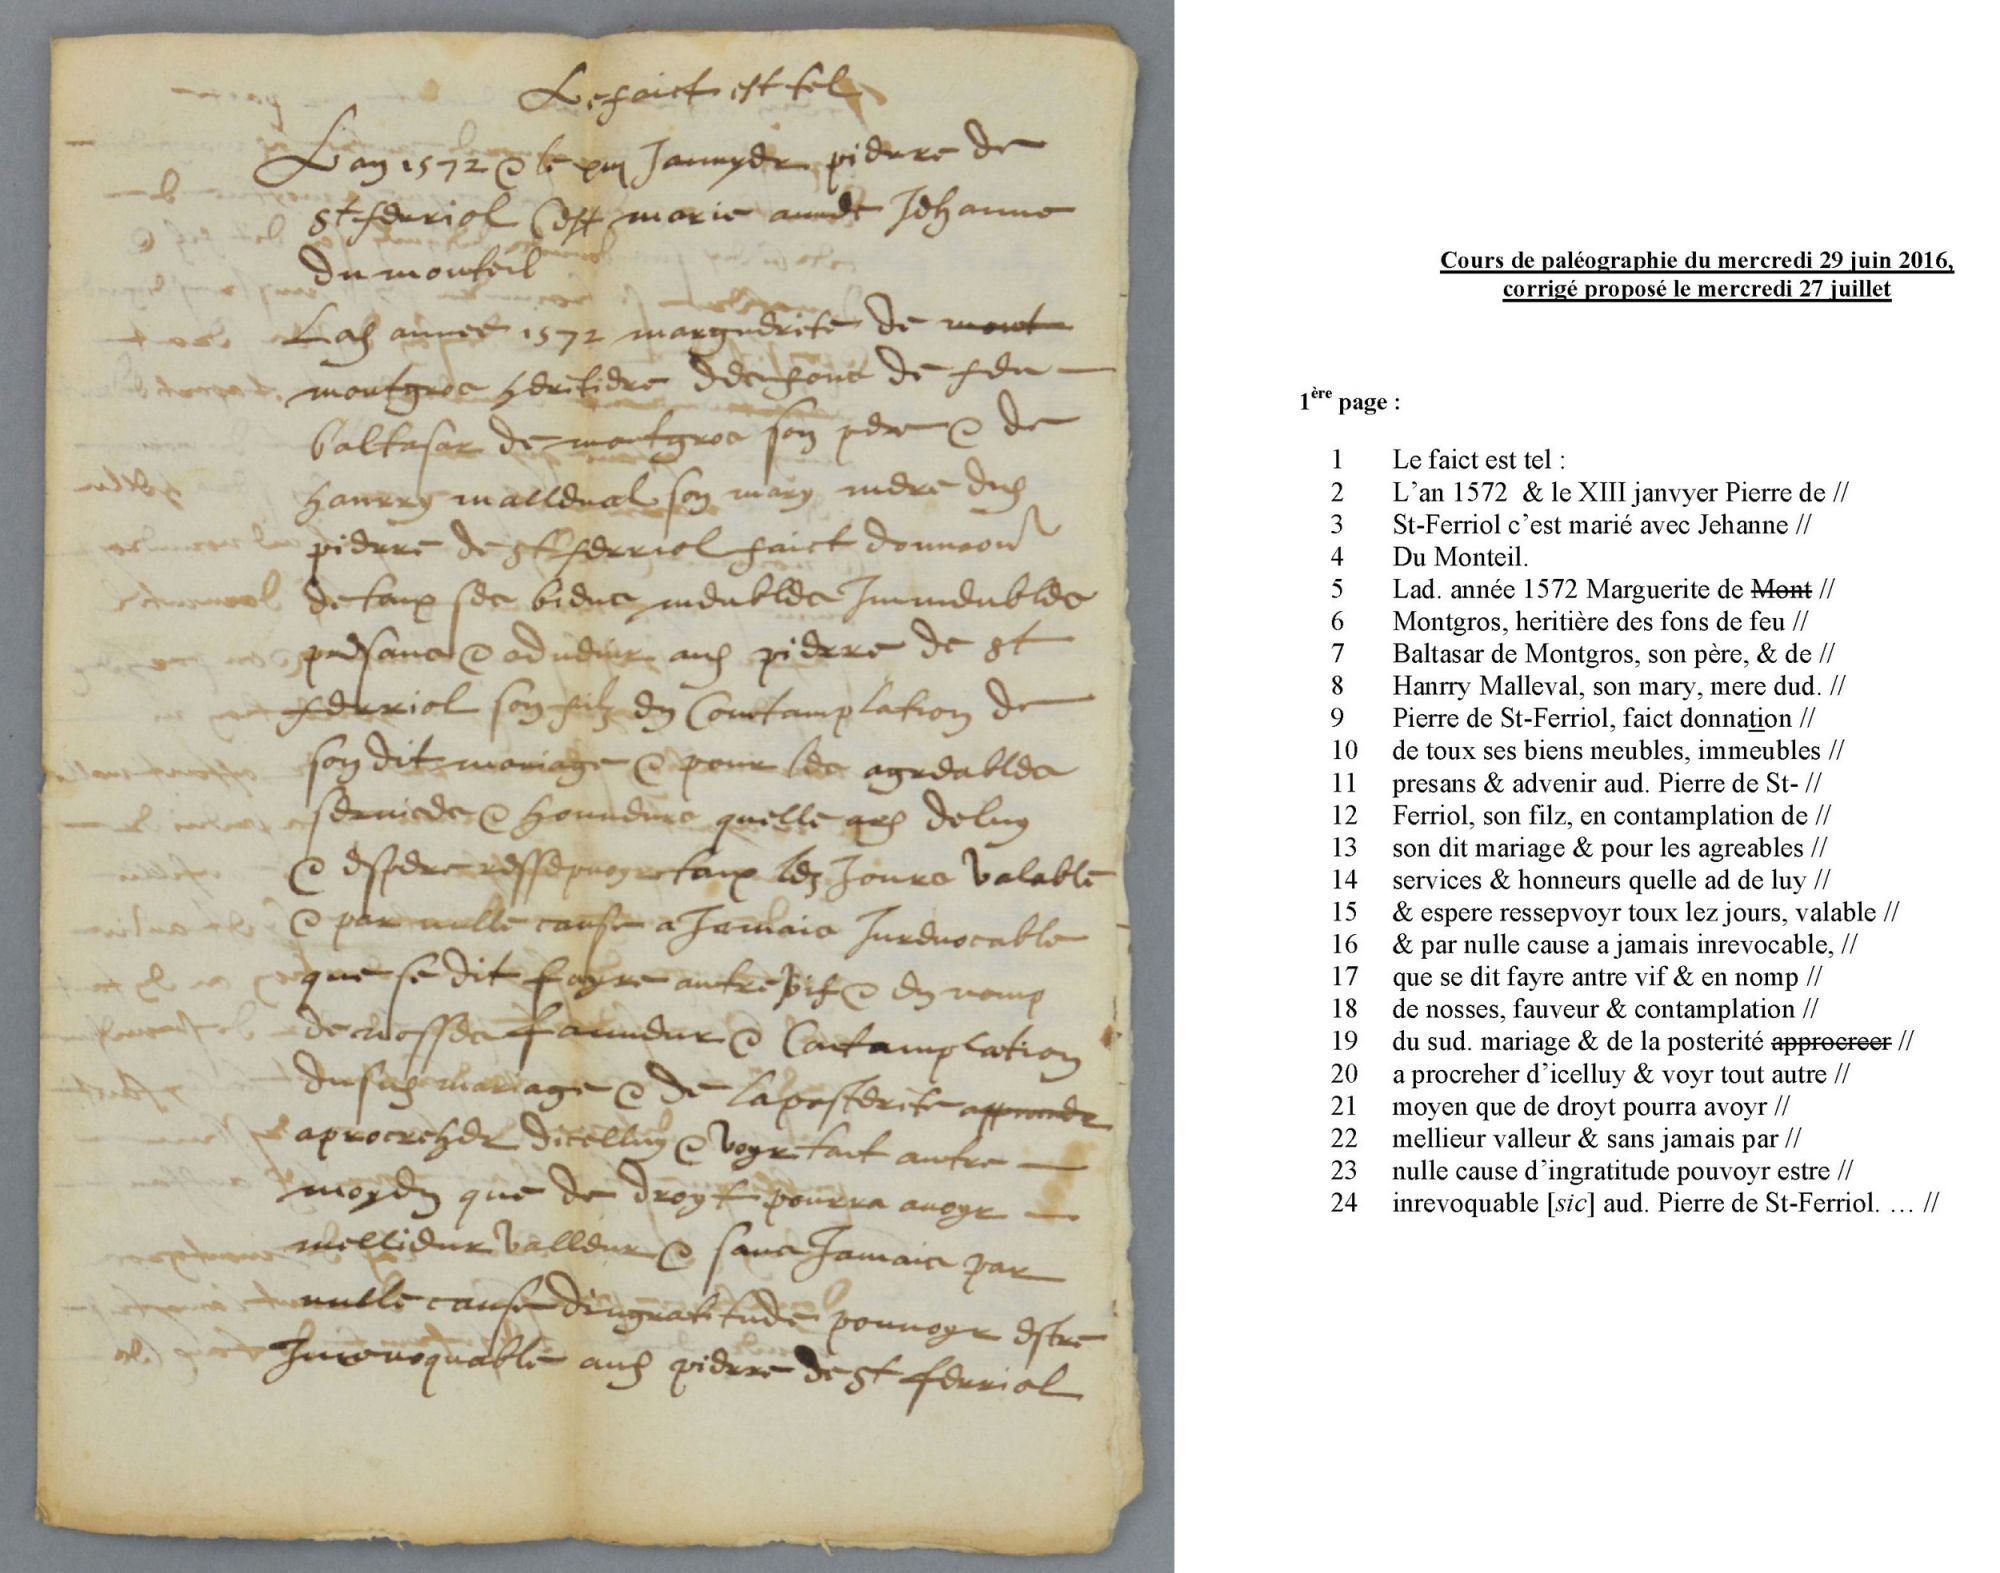 Le faict est tel
Lan 1572 & le xiii Janvyer pierre de
St ferriol cest marie avec Jehanne
du monteil
Lad annee 1572 marguerite de mont
montgros heritiere des fons de feu
baltasar de montgros son pere & de
hanrry malleval son mary mere dud
pierre de St ferriol faict donnaon
de toux ses biens meubles Immeubles
presans & advenir aud pierre de St
ferriol son filz en Contamplation de
son dit mariage & pour les agreables
services & honneurs quelle ad de luy
& espere ressepvoyr toux lez Jours valable
& par nulle cause a Jamais Inrevocable
que se dit fayre antre vif & en nomp
de nosses fauveur & Contamplation
du sud mariage & de la posterite approcreer
a procreher dicelluy & voyr tout autre
moyen que de droyt pourra avoyr
mellieur valleur & sans Jamais par
nulle cause dingratitude pouvoyr estre
Inrevoquable aud pierre de St ferriol
Cours de paléographie du mercredi 29 juin 2016,
corrigé proposé le mercredi 27 juillet
1ère page :
1 Le faict est tel :
2 L’an 1572 & le XIII janvyer Pierre de //
3 St-Ferriol c’est marié avec Jehanne //
4 Du Monteil.
5 Lad. année 1572 Marguerite de Mont //
6 Montgros, heritière des fons de feu //
7 Baltasar de Montgros, son père, & de //
8 Hanrry Malleval, son mary, mere dud. //
9 Pierre de St-Ferriol, faict donnation //
10 de toux ses biens meubles, immeubles //
11 presans & advenir aud. Pierre de St- //
12 Ferriol, son filz, en contamplation de //
13 son dit mariage & pour les agreables //
14 services & honneurs quelle ad de luy //
15 & espere ressepvoyr toux lez jours, valable //
16 & par nulle cause a jamais inrevocable, //
17 que se dit fayre antre vif & en nomp //
18 de nosses, fauveur & contamplation //
19 du sud. mariage & de la posterité approcreer //
20 a procreher d’icelluy & voyr tout autre //
21 moyen que de droyt pourra avoyr //
22 mellieur valleur & sans jamais par //
23 nulle cause d’ingratitude pouvoyr estre //
24 inrevoquable [sic] aud. Pierre de St-Ferriol. … //